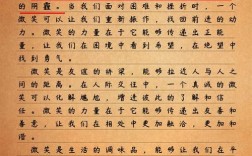 的阴霾。当我们面对困难和挫折时，一个
微笑可以让我们重新振作，找回前进的动
力。微笑的力量在于它能够传递出正能
量，让我们在困境中看到希望，在绝望中
找到勇气。
微笑是友谊的桥梁，能够拉近人与人之
间的距离。在人际交往中，一个真诚的微
笑可以化解尴尬，增进彼此的了解和信
任。微笑的力量在于它能够传递出友善和
善意，让我们在相处中更加融洽，更加和
谐。
微笑是生活的调味品，能够让我们在平